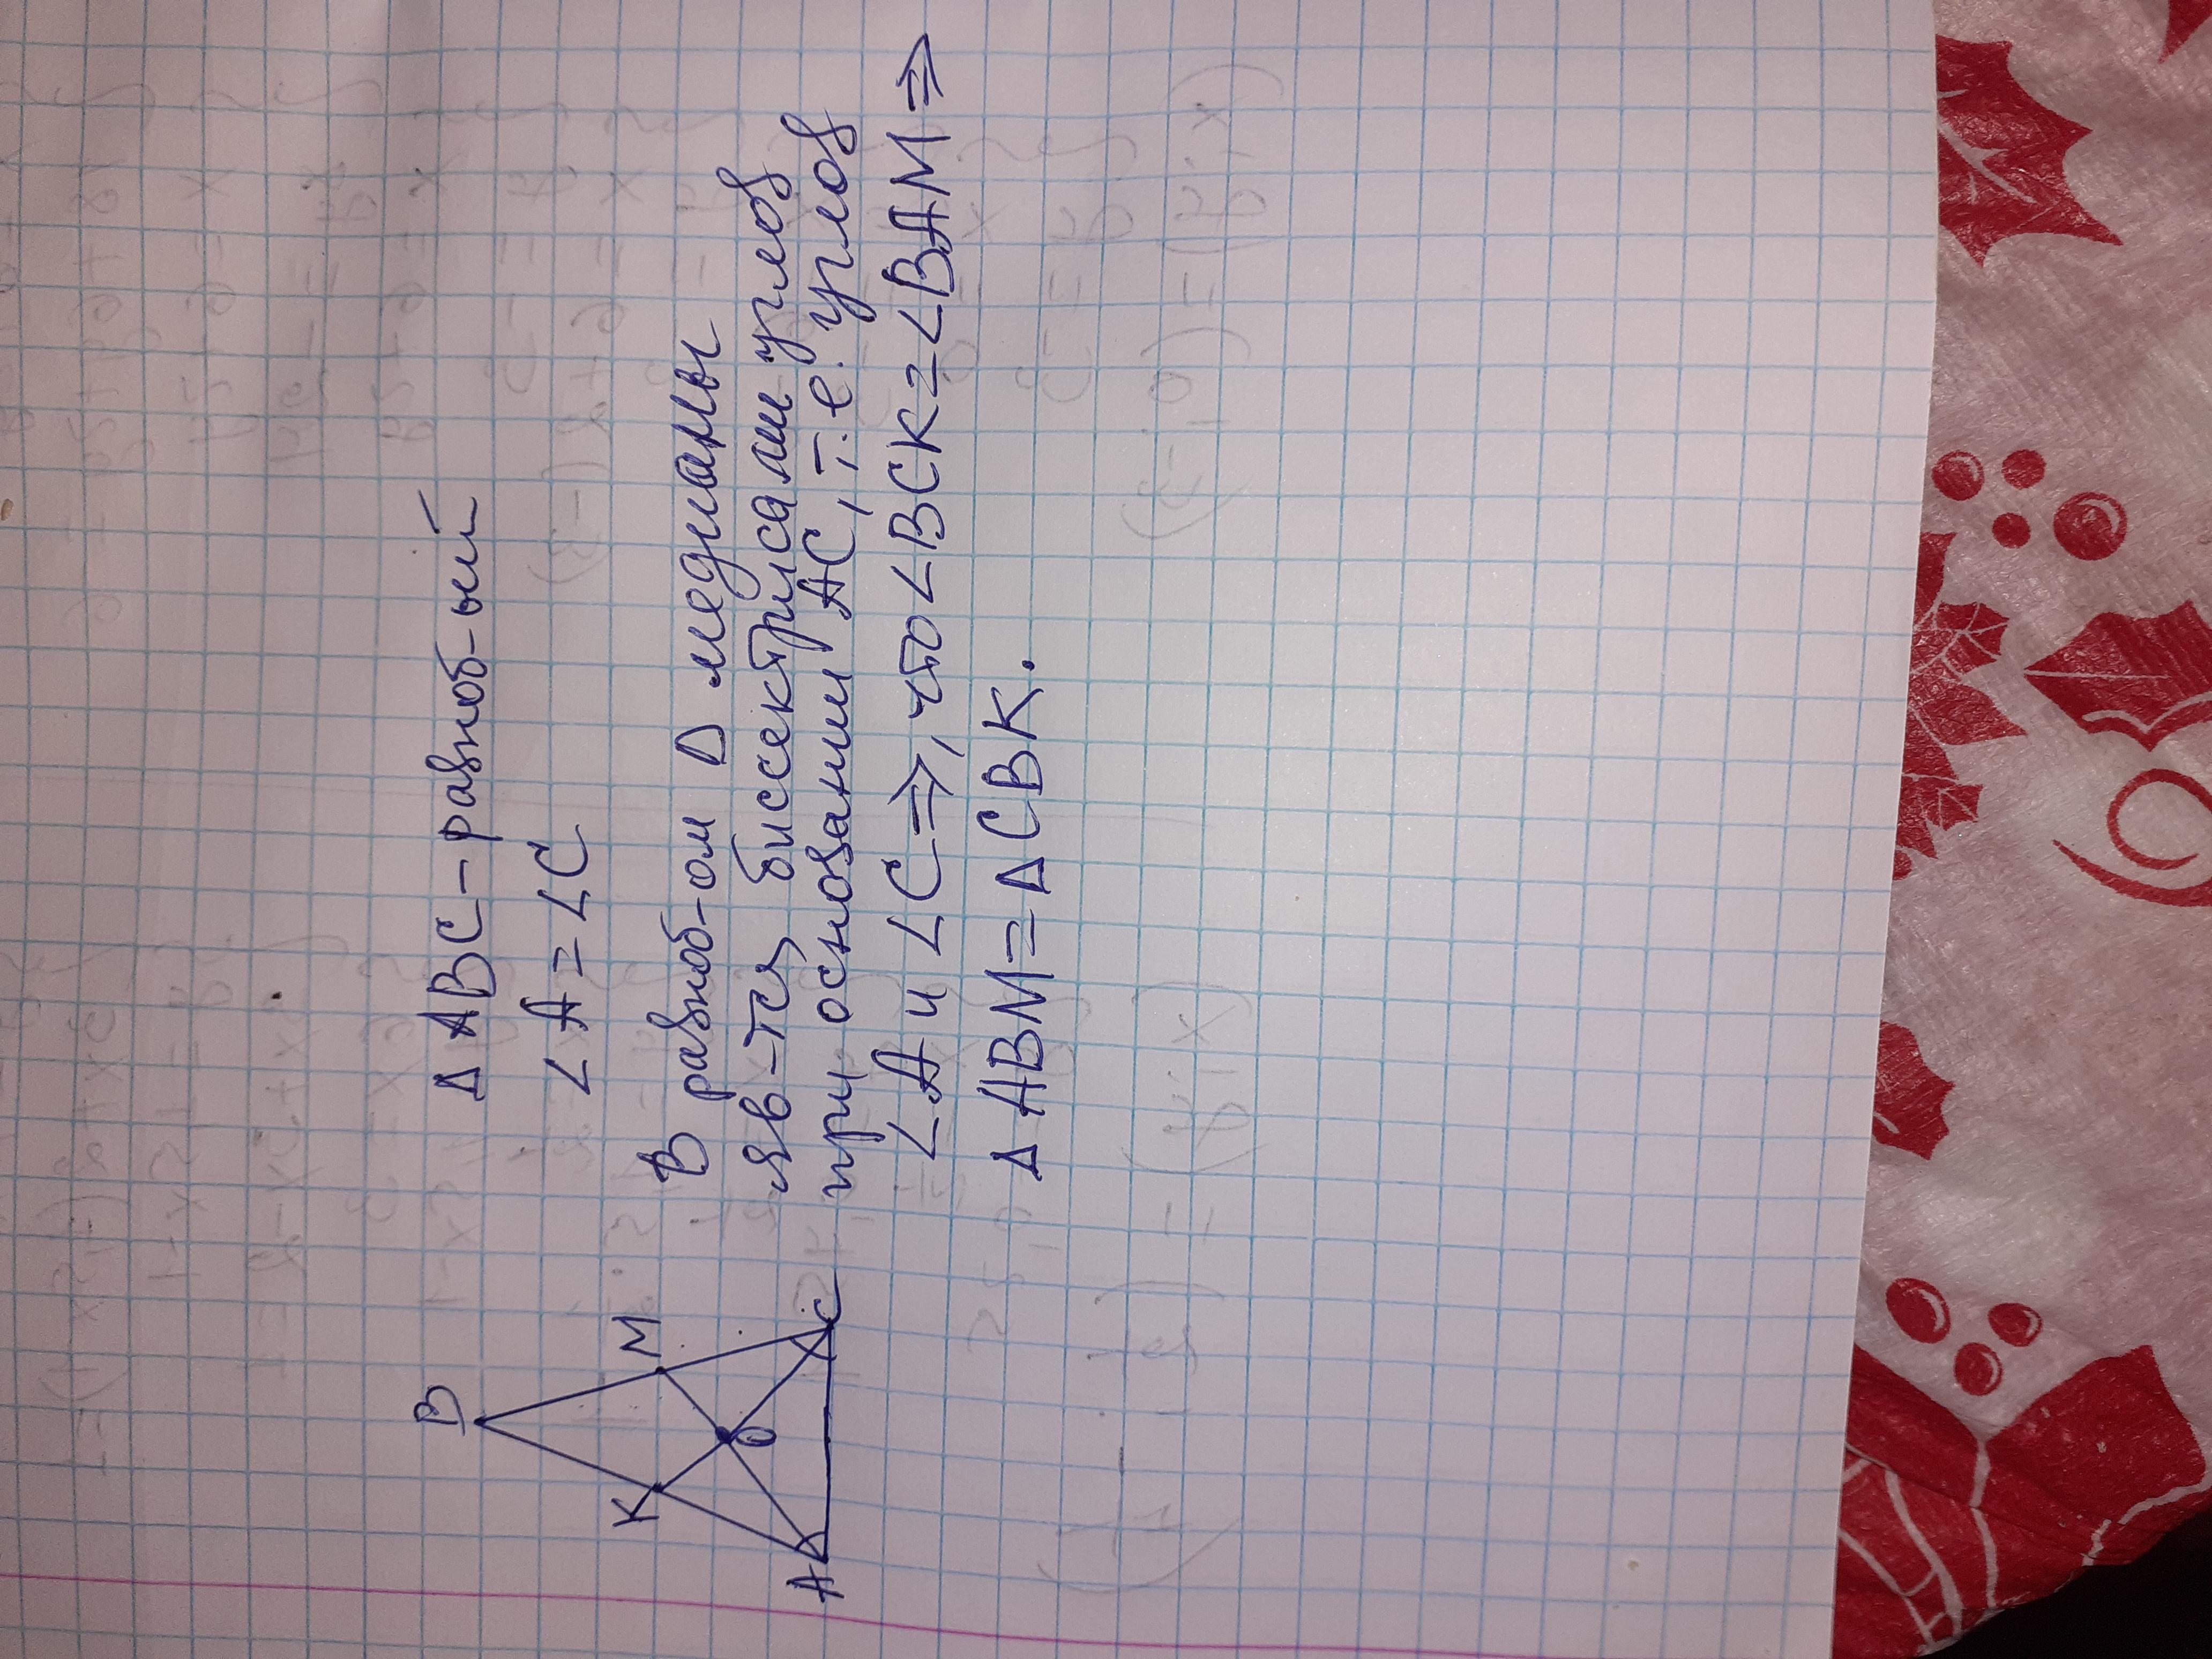 Δ ABC - равноб-ый
∠A = ∠C
B
K
M
O
A
C
В равноб-ом Δ медианы
яв-тся биссектрисами углов
при основании AC, т.е. углов
∠A и ∠C ⇒, что ∠BCK = ∠BAM ⇒
Δ ABM = Δ CBK.